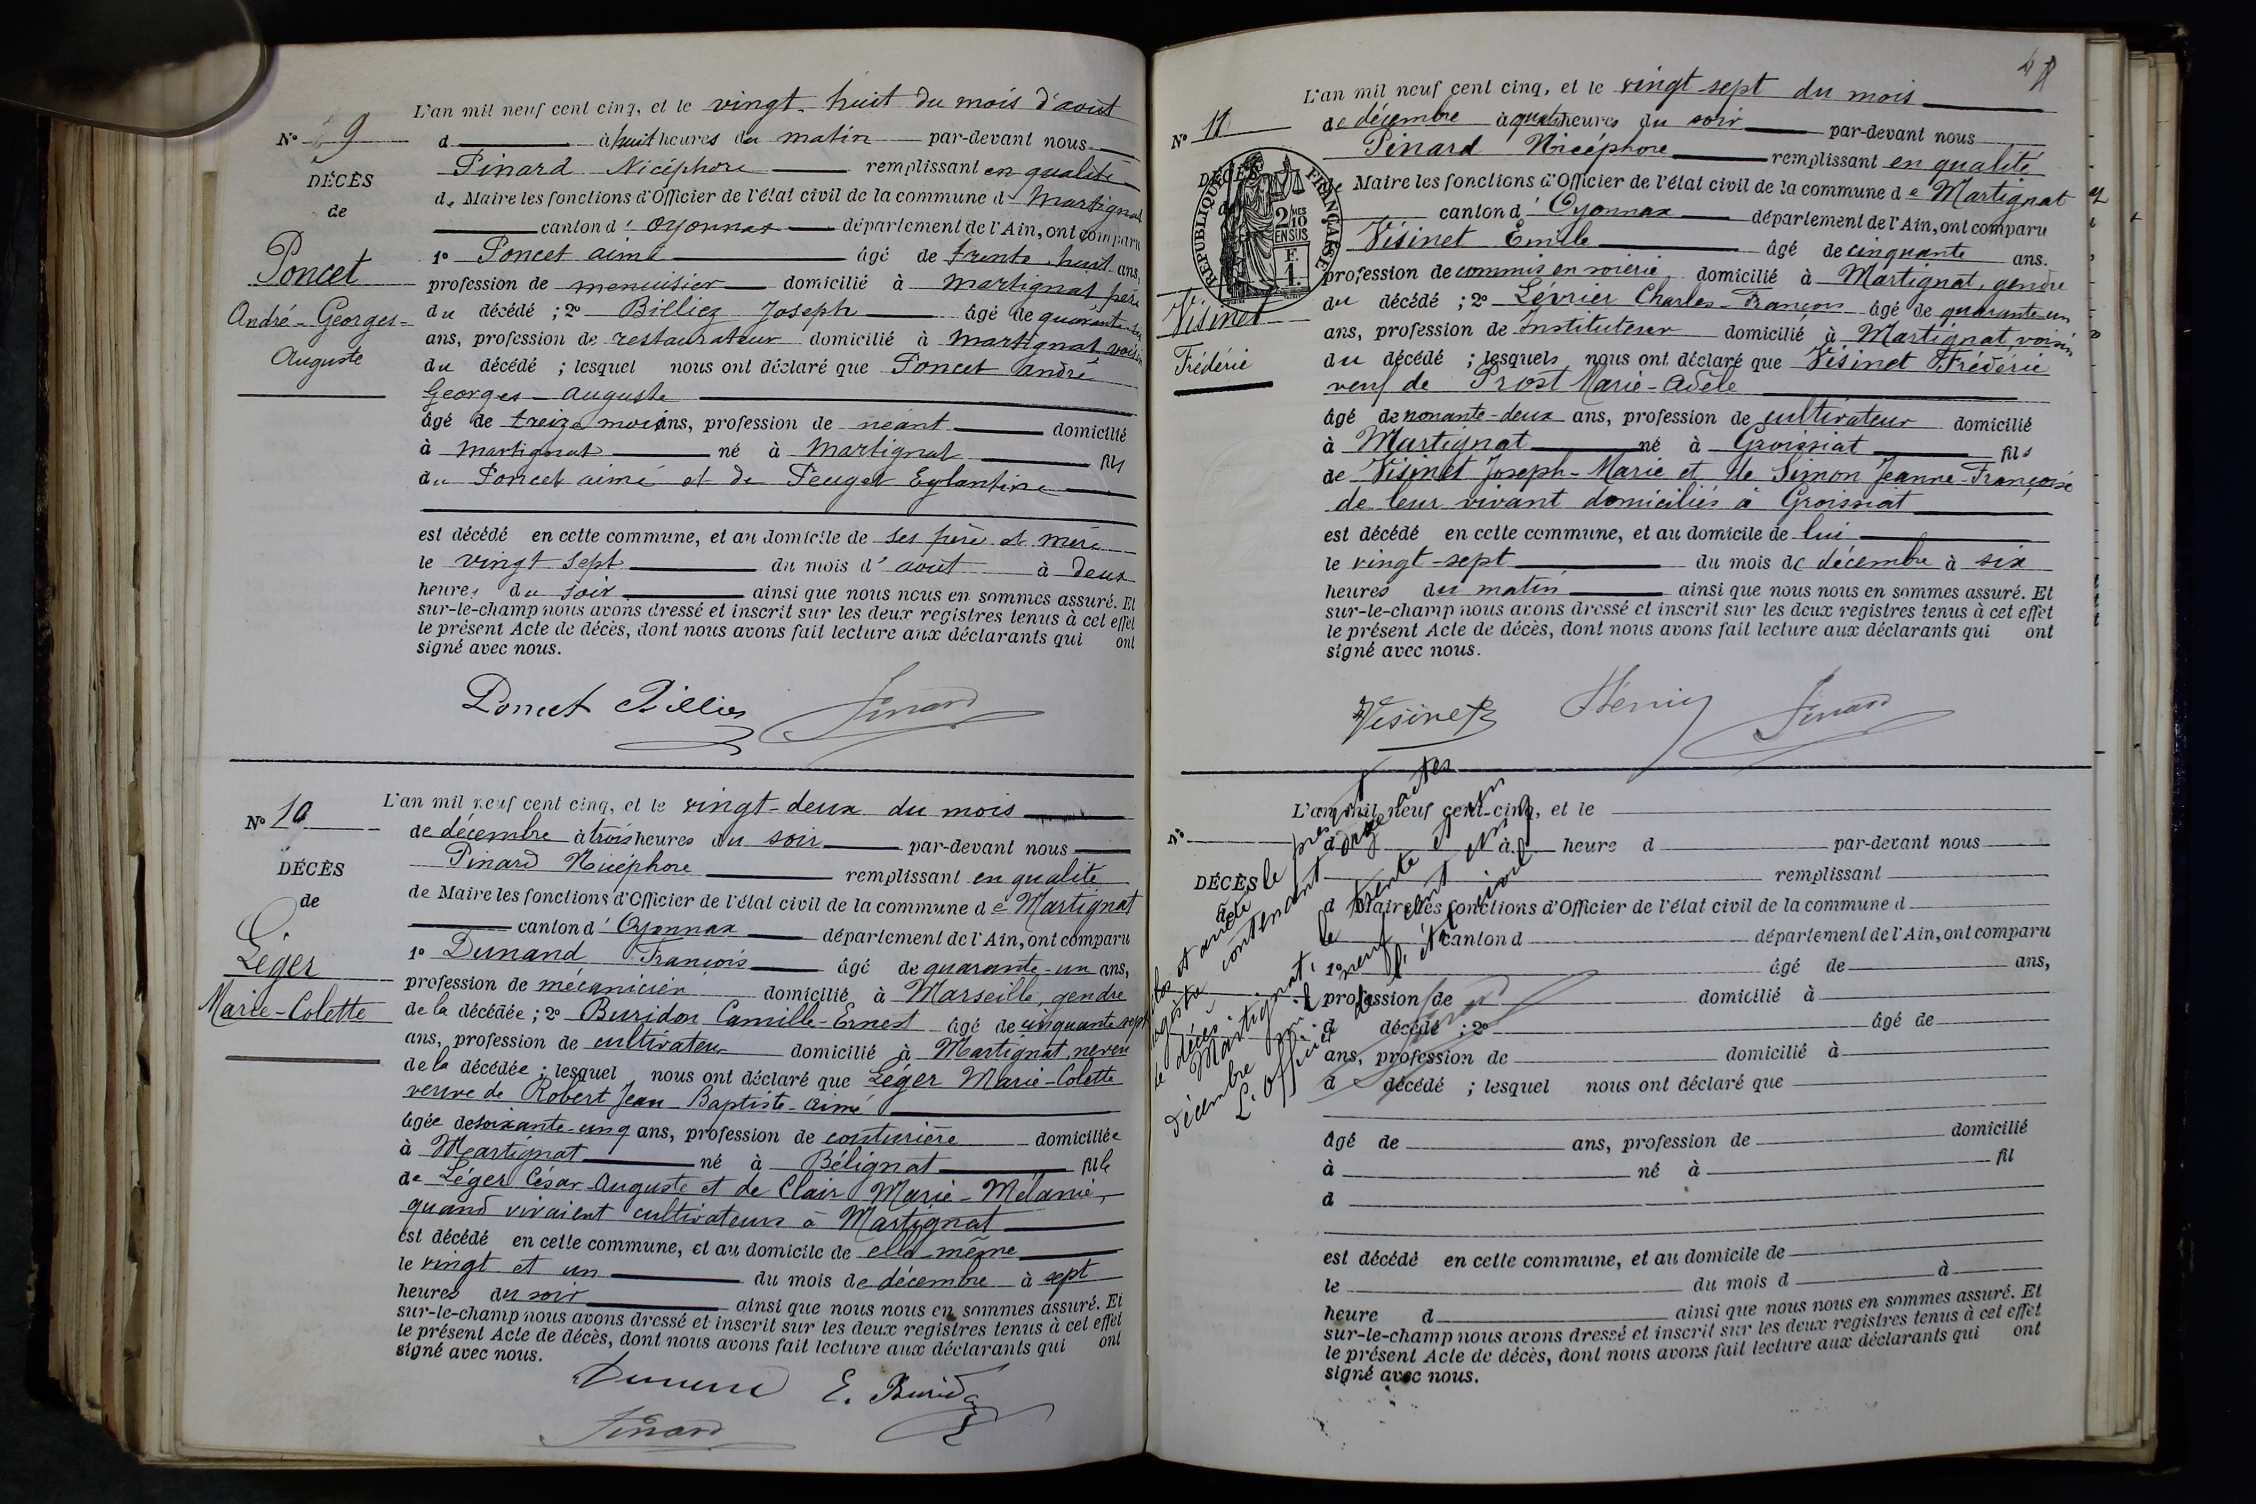 L'an mil neuf cent cinq, et le vingt-huit du mois d'août
N° 9
d à huit heures du matin par-devant nous
Pinard Nicéphore remplissant en qualité
DÉCÈS
de Maire les fonctions d'Officier de l'état civil de la commune d Martignat
de
canton d' Oyonnax département de l'Ain, ont comparu
Poncet
1° Poncet aimé âgé de trente-huit ans,
profession de menuisier domicilié à Martignat, père
André-Georges-
du décédé ; 2° Billiez Joseph âgé de
Auguste
ans, profession de restaurateur domicilié à Martignat, voisin
du décédé ; lesquel nous ont déclaré que Poncet André
Georges-Auguste
âgé de treize mois ans, profession de néant domicilié
à Martignat né à Martignat fils
du Poncet aimé et de Peuget Eglantine
est décédé en cette commune, et au domicile de ses père et mère
le vingt sept du mois d' août à deux
heures du soir ainsi que nous nous en sommes assuré. Et
sur-le-champ nous avons dressé et inscrit sur les deux registres tenus à cet effet
le présent Acte de décès, dont nous avons fait lecture aux déclarants qui ont
signé avec nous.
Poncet Billiez Pinard
L'an mil neuf cent cinq, et le vingt-deux du mois
N° 10
de décembre à trois heures du soir par-devant nous
Pinard Nicéphore remplissant en qualité
DÉCÈS
de Maire les fonctions d'Officier de l'état civil de la commune de Martignat
de
canton d' Oyonnax département de l'Ain, ont comparu
Léger
1° Dunand François âgé de quarante-un ans,
profession de mécanicien domicilié à Marseille, gendre
Marie-Colette
de la décédée ; 2° Buridon Camille-Ernest âgé de cinquante sept
ans, profession de cultivateur domicilié à Martignat, neveu
de la décédée ; lesquel nous ont déclaré que Léger Marie-Colette
veuve de Robert Jean-Baptiste-Aimé
âgée de soixante-cinq ans, profession de couturière domiciliée
à Martignat né à Bélignat fille
de Léger César-Auguste et de Clair Marie-Mélanie,
quand vivaient cultivateurs à Martignat
est décédé en cette commune, et au domicile de elle-même
le vingt et un du mois de décembre à sept
heures du soir ainsi que nous nous en sommes assuré. Et
sur-le-champ nous avons dressé et inscrit sur les deux registres tenus à cet effet
le présent Acte de décès, dont nous avons fait lecture aux déclarants qui ont
signé avec nous.
Dunand E. Buridon
Pinard
L'an mil neuf cent cinq, et le vingt-sept du mois
N° 11
de décembre à quatre heures du soir par-devant nous
Pinard Nicéphore remplissant en qualité
DÉCÈS
RÉPUBLIQUE FRANÇAISE
2 MES
10
EN SUS
F.
1.
de Maire les fonctions d'Officier de l'état civil de la commune de Martignat
canton d' Oyonnax département de l'Ain, ont comparu
Visinet Emile âgé de cinquante ans.
profession de commis en soierie, domicilié à Martignat, gendre
Visinet
du décédé ; 2° Lévrier Charles-François âgé de quarante-un
ans, profession de Instituteur domicilié à Martignat, voisin
Frédéric
du décédé ; lesquels nous ont déclaré que Visinet Frédéric
veuf de Prost Marie-Adèle
âgé de nonante-deux ans, profession de cultivateur domicilié
à Martignat né à Groissiat fils
de Visinet Joseph-Marie et de Simon Jeanne-Françoise
de leur vivant domiciliés à Groissiat
est décédé en cette commune, et au domicile de lui
le vingt-sept du mois de décembre à six
heures du matin ainsi que nous nous en sommes assuré. Et
sur-le-champ nous avons dressé et inscrit sur les deux registres tenus à cet effet
le présent Acte de décès, dont nous avons fait lecture aux déclarants qui ont
signé avec nous.
Visinet Pinard
L'an mil neuf cent cinq, et le
N°
d à heure d par-devant nous
remplissant
DÉCÈS
d Maire les fonctions d'Officier de l'état civil de la commune d
de
canton d département de l'Ain, ont comparu
1° âgé de ans,
profession de domicilié à
d décédé ; 2° âgé de
ans, profession de domicilié à
d décédé ; lesquel nous ont déclaré que
âgé de ans, profession de domicilié
à né à fil
d
est décédé en cette commune, et au domicile de
le du mois d à
heure d ainsi que nous nous en sommes assuré. Et
sur-le-champ nous avons dressé et inscrit sur les deux registres tenus à cet effet
le présent Acte de décès, dont nous avons fait lecture aux déclarants qui ont
signé avec nous.
Clos et arrêté le présent
registre contenant onze actes
de décès.
Martignat, le trente et un
décembre mil neuf cent cinq
L'officier de l'état civil
Pinard